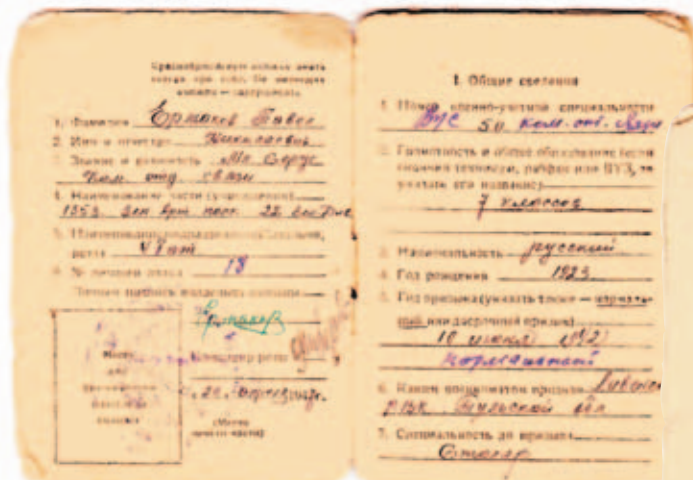 Красноармейскую книжку иметь
всегда при себе. Не имеющих
книжки — задерживать.
1. Фамилия Ермаков Павел
2. Имя и отчество Николаевич
3. Звание и должность Мл. Серж
Ком отд. связи
4. Наименование части (учреждения)
1353 Зен арт полк 22
5.
рота
6. № личного знака 13
Личная подпись владельца книжки
Ермаков
Место
для
Командир роты
(Место
печати части)
I. Общие сведения
1. Номер военно-учетной специальности
ВУС 50 Ком. отд.
2. Грамотность и общее образование (если
окончил техникум, рабфак или ВУЗ, то
указать его название)
7 классов
3. Национальность русский
4. Год рождения 1923
5. Год призыва (указать также — нормаль-
ный или досрочный призыв)
10 1942
нормальный
6. Каким военкоматом призван
РВК Тульской обл
7. Специальность до призыва
Столяр